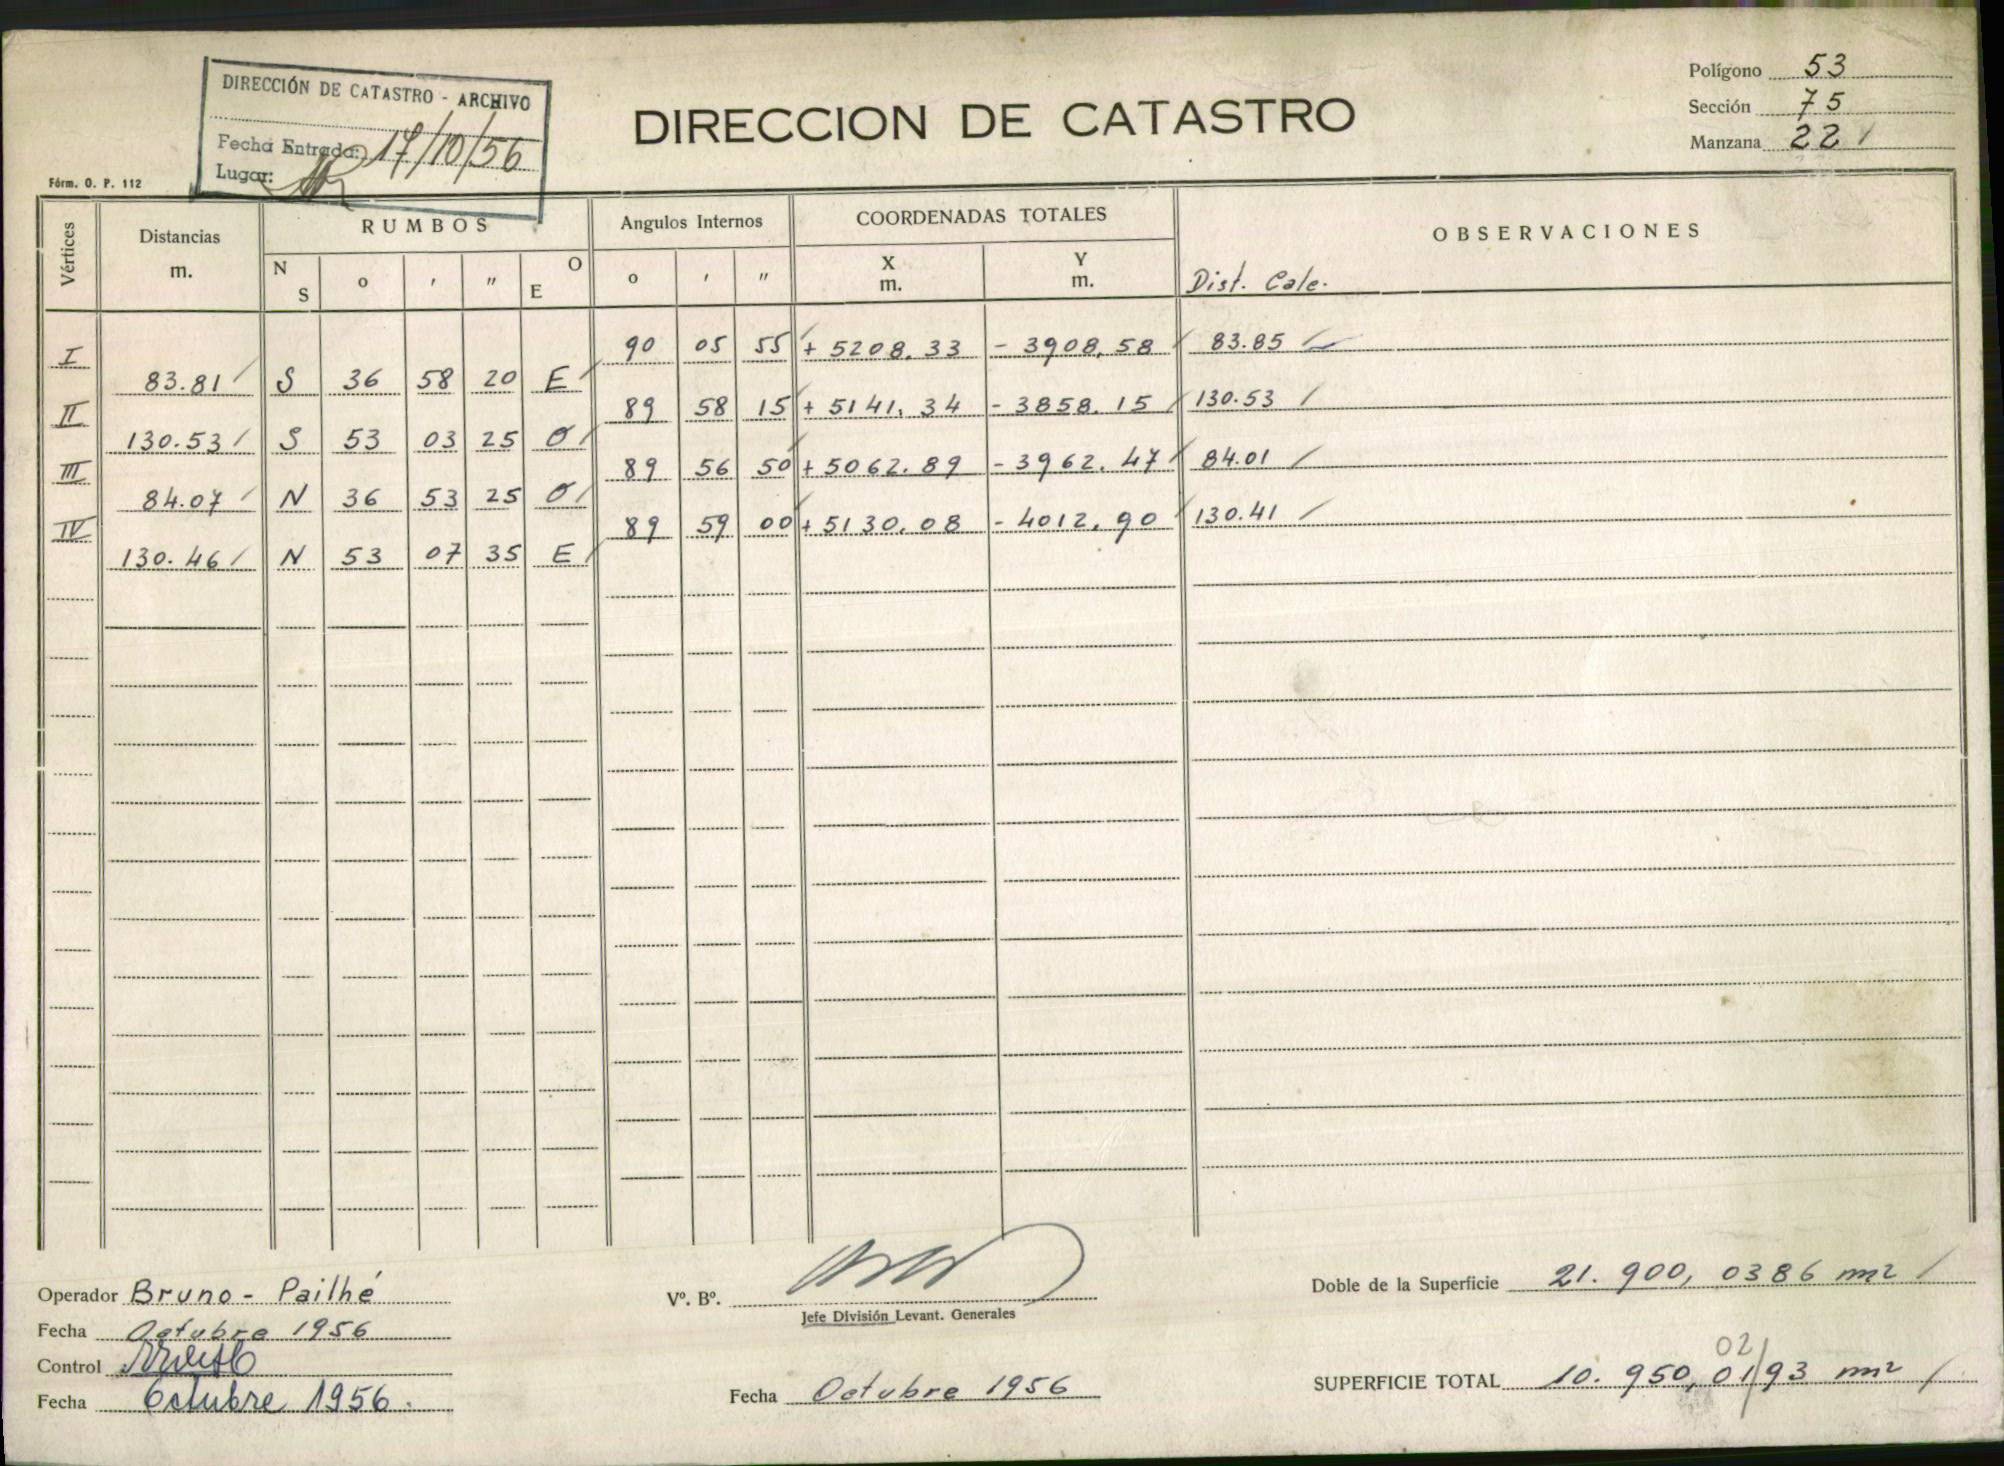 DIRECCIÓN DE CATASTRO - ARCHIVO
Fecha Entrada: 17/10/56
Lugar:
DIRECCION DE CATASTRO
Polígono 53
Sección 75
Manzana 22
Fórm. O. P. 112
Vértices Distancias m. RUMBOS Angulos Internos COORDENADAS TOTALES OBSERVACIONES
N S o ' " O E o ' " X m. Y m. Dist. Calc.
I 90 05 55 + 5208.33 - 3908.58 83.85
83.81 S 36 58 20 E
II 89 58 15 + 5141.34 - 3858.15 130.53
130.53 S 53 03 25 O
III 89 56 50 + 5062.89 - 3962.47 84.01
84.07 N 36 53 25 O
IV 89 59 00 + 5130.08 - 4012.90 130.41
130.46 N 53 07 35 E
Operador Bruno - Pailhé
Fecha Octubre 1956
Control
Fecha Octubre 1956.
Vº. Bº.
Jefe División Levant. Generales
Fecha Octubre 1956
Doble de la Superficie 21.900,0386 m2
02
SUPERFICIE TOTAL 10.950,01/93 m2